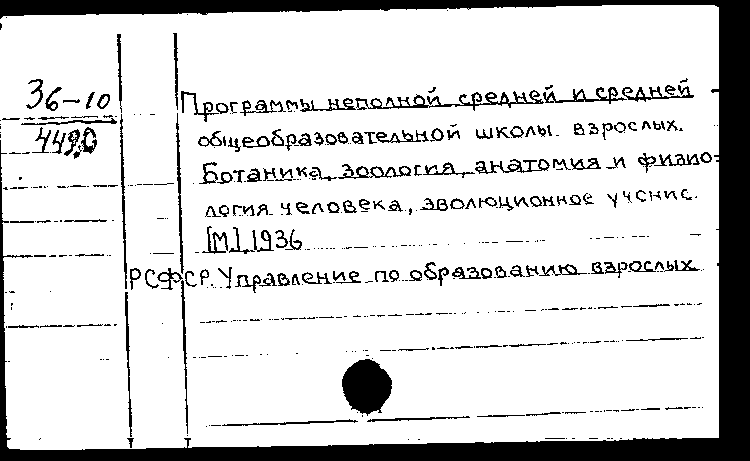 36-10
4490
Программы неполной средней и средней
общеобразовательной школы взрослых.
Ботаника, зоология, анатомия и физио=
логия человека, эволюционное учение.
[М.], 1936
РСФСР. Управление по образованию взрослых